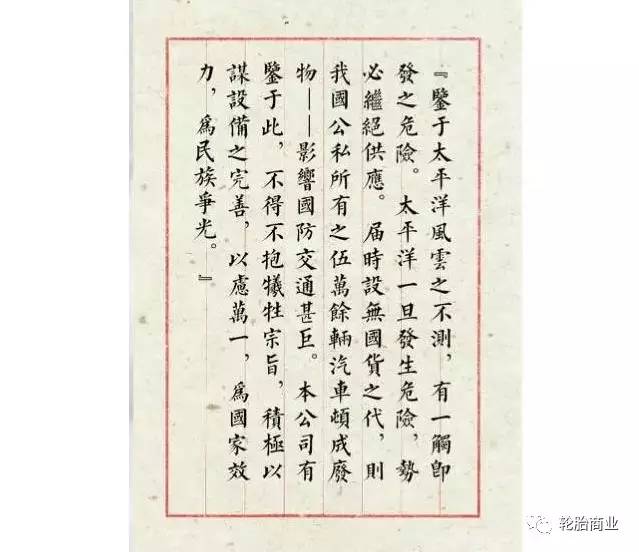 『鑒于太平洋風雲之不測，有一觸即
發之危險。太平洋一旦發生危險，勢
必繼絕供應。屆時設無國貨之代，則
我國公私所有之伍萬餘輛汽車頓成廢
物——影響國防交通甚巨。本公司有
鑒于此，不得不抱犧牲宗旨，積極以
謀設備之完善，以慮萬一，爲國家效
力，爲民族爭光。』
轮胎商业